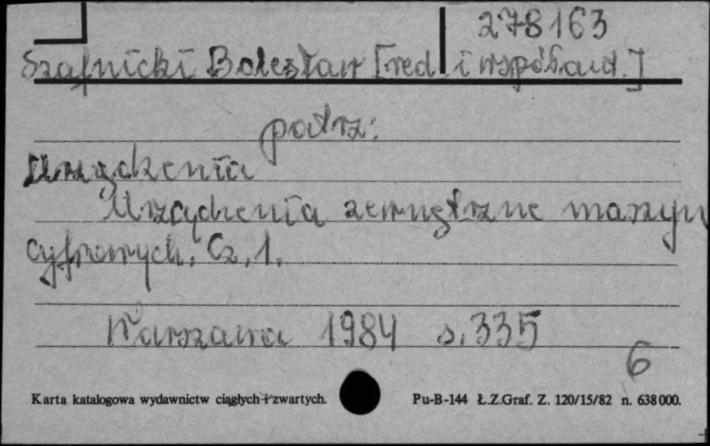 278163
Szafnicki Bolesław [red. i współaut.]
patrz:
Urządzenia
Urządzenia zewnętrzne maszyn
cyfrowych. Cz. 1.
Warszawa 1984 s. 335
6
Karta katalogowa wydawnictw ciągłych i zwartych. Pu-B-144 Ł.Z.Graf. Z. 120/15/82 n. 638000.